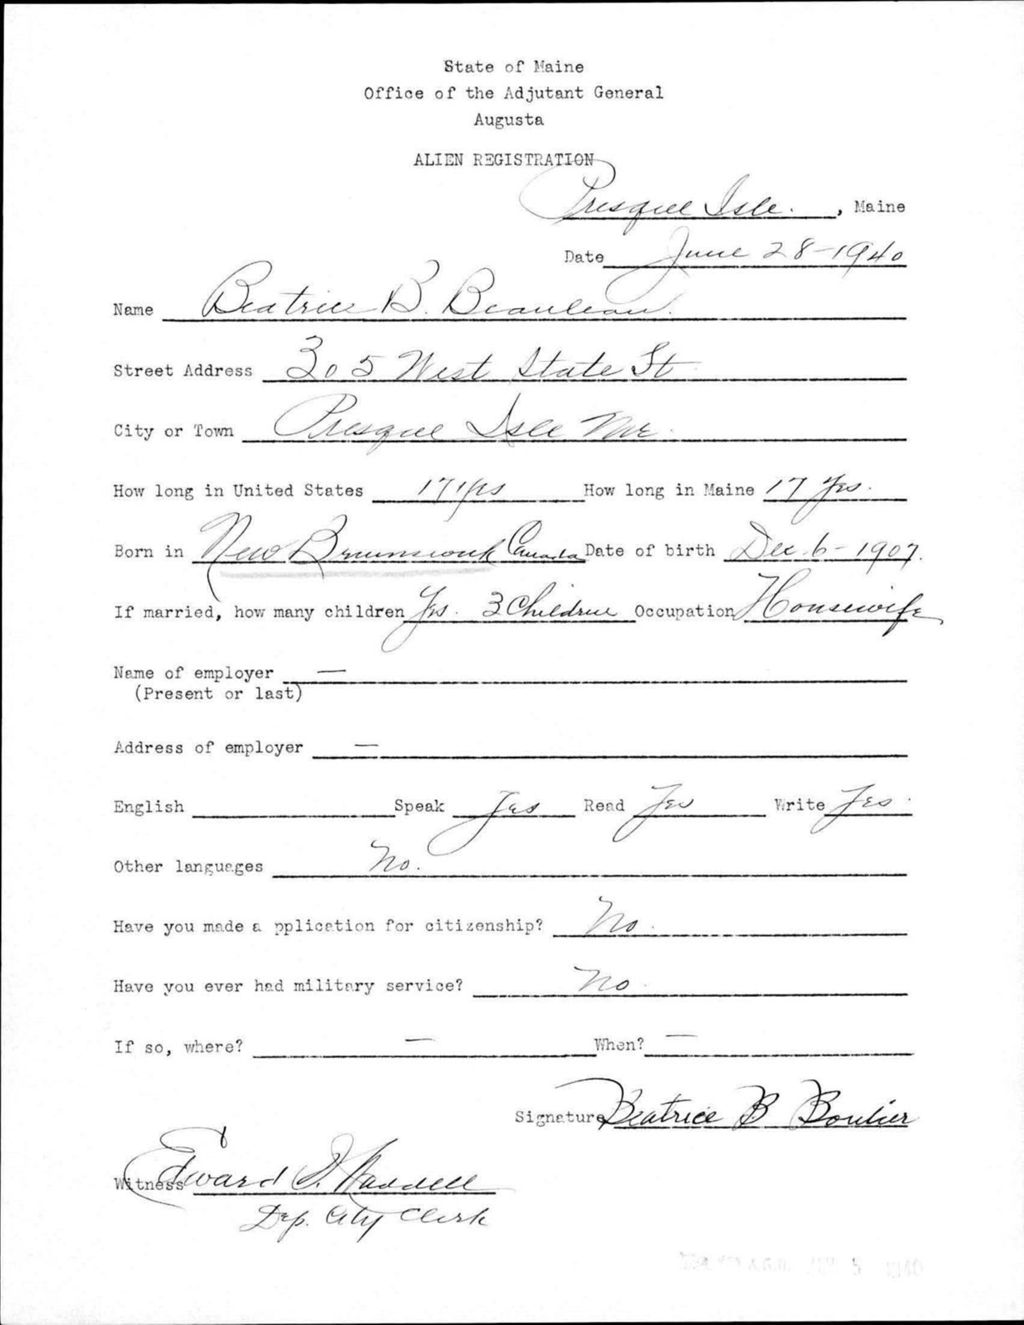 State of Maine
Office of the Adjutant General
Augusta
ALIEN REGISTRATION
Presque Isle. , Maine
Date June 28-1940
Name Beatrice B. Beaulieau.
Street Address 305 West State St
City or Town Presque Isle Me.
How long in United States 17 yrs How long in Maine 17 Yrs.
Born in New Brunswick Canada Date of birth Dec. 6-1907.
If married, how many children Yes. 3 Children Occupation Housewife
Name of employer —
(Present or last)
Address of employer —
English Speak Yes Read Yes Write Yes.
Other languages No.
Have you made a pplication for citizenship? No.
Have you ever had military service? No.
If so, where? — When? —
Signature Beatrice B Boulier
Witness Edward I. Waddell
Dep. City Clerk